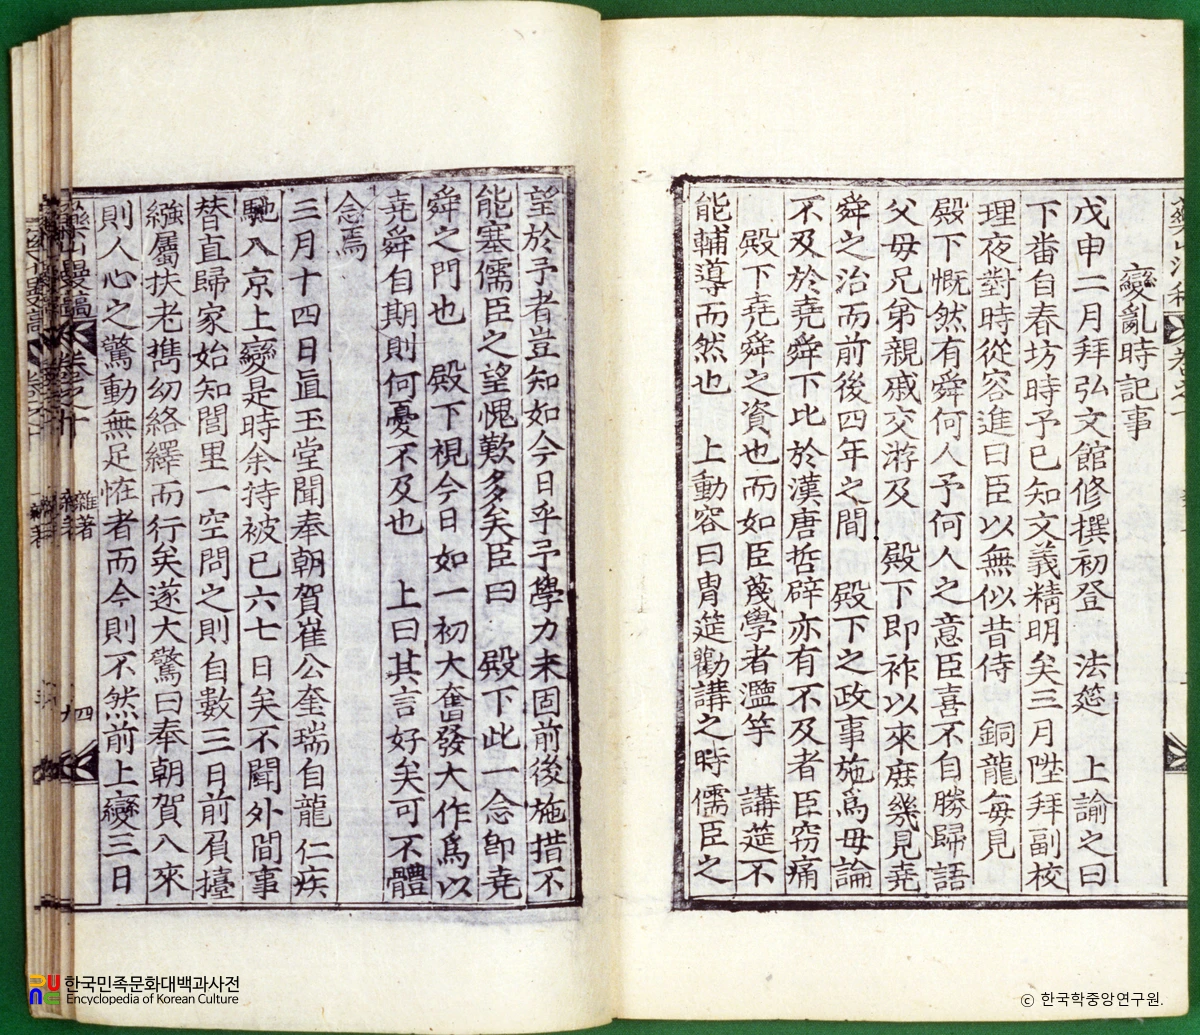 變亂時記事
戊申二月拜弘文館修撰初登 法筵 上諭之曰
下番自春坊時予已知文義精明矣三月陞拜副校
理夜對時從容進曰臣以無似昔侍 銅龍每見
殿下慨然有舜何人予何人之意臣喜不自勝歸語
父母兄弟親戚交游及 殿下即祚以來庶幾見堯
舜之治而前後四年之間 殿下之政事施爲毋論
不及於堯舜下比於漢唐哲辟亦有不及者臣窃痛
殿下堯舜之資也而如臣蔑學者濫竽 講筵不
能輔導而然也 上動容曰胄筵勸講之時儒臣之
望於予者豈知如今日乎予學力未固前後施措不
能塞儒臣之望愧歎多矣臣曰 殿下此一念卽堯
舜之門也 殿下視今日如一初大奮發大作爲以
堯舜自期則何憂不及也 上曰其言好矣可不體
念焉
三月十四日直玉堂聞奉朝賀崔公奎瑞自龍仁疾
馳入京上變是時余持被已六七日矣不聞外間事
替直歸家始知閭里一空問之則自數三日前負擡
繦屬扶老携幼絡繹而行矣遂大驚曰奉朝賀入來
則人心之驚動無足恠者而今則不然前上變三日
藥山漫稿 卷之十 雜著 四
한국민족문화대백과사전
Encyclopedia of Korean Culture
© 한국학중앙연구원.